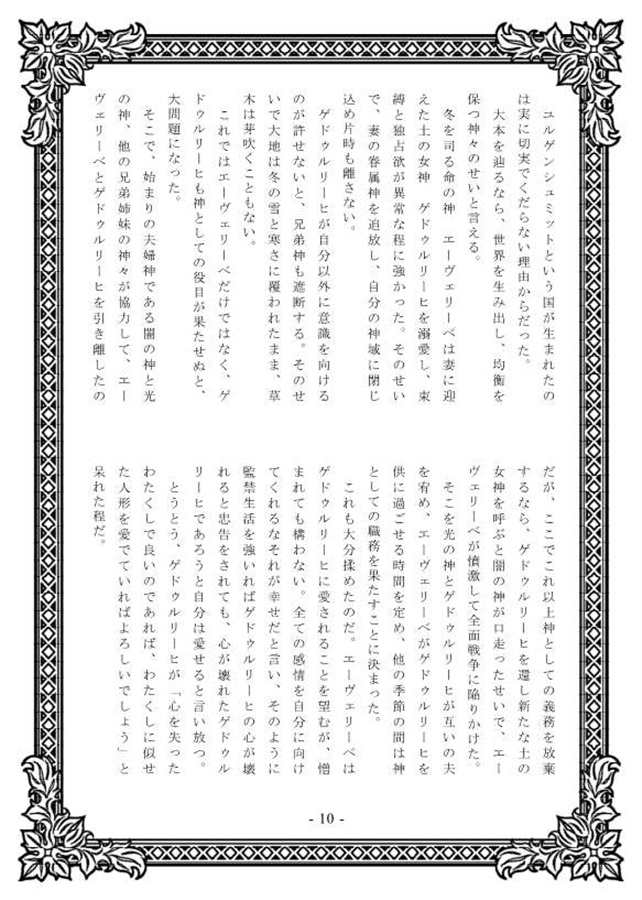 ユルゲンシュミットという国が生まれたの
は実に切実でくだらない理由からだった。
　大本を辿るなら、世界を生み出し、均衡を
保つ神々のせいと言える。
　冬を司る命の神　エーヴェリーベは妻に迎
えた土の女神　ゲドゥルリーヒを溺愛し、束
縛と独占欲が異常な程に強かった。そのせい
で、妻の眷属神を追放し、自分の神域に閉じ
込め片時も離さない。
　ゲドゥルリーヒが自分以外に意識を向ける
のが許せないと、兄弟神も遮断する。そのせ
いで大地は冬の雪と寒さに覆われたまま、草
木は芽吹くこともない。
　これではエーヴェリーベだけではなく、ゲ
ドゥルリーヒも神としての役目が果たせぬと、
大問題になった。
　そこで、始まりの夫婦神である闇の神と光
の神、他の兄弟姉妹の神々が協力して、エー
ヴェリーベとゲドゥルリーヒを引き離したの
だが、ここでこれ以上神としての義務を放棄
するなら、ゲドゥルリーヒを還し新たな土の
女神を呼ぶと闇の神が口走ったせいで、エー
ヴェリーベが憤激して全面戦争に陥りかけた。
　そこを光の神とゲドゥルリーヒが互いの夫
を宥め、エーヴェリーベがゲドゥルリーヒを
供に過ごせる時間を定め、他の季節の間は神
としての職務を果たすことに決まった。
　これも大分揉めたのだ。エーヴェリーベは
ゲドゥルリーヒに愛されることを望むが、憎
まれても構わない。全ての感情を自分に向け
てくれるなそれが幸せだと言い、そのように
監禁生活を強いればゲドゥルリーヒの心が壊
れると忠告をされても、心が壊れたゲドゥル
リーヒであろうと自分は愛せると言い放つ。
　とうとう、ゲドゥルリーヒが「心を失った
わたくしで良いのであれば、わたくしに似せ
た人形を愛でていればよろしいでしょう」と
呆れた程だ。
- 10 -